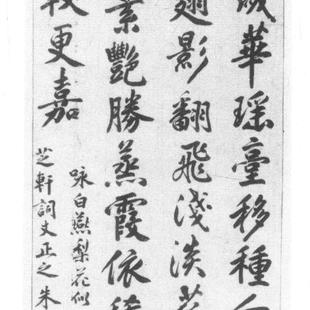 華瑶臺移種
翅影翻飛淺淡
素艷勝蒸霞依
更嘉
咏白燕梨花似
芝軒詞丈正之 朱